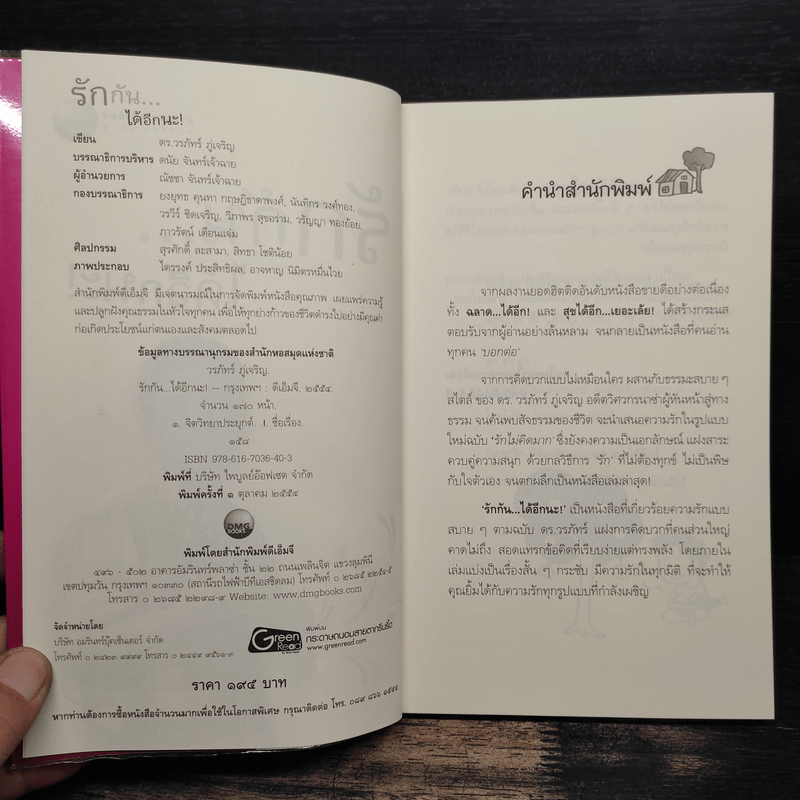 รักกัน...
ได้อีกนะ!
เขียน ดร.วรภัทร์ ภู่เจริญ
บรรณาธิการบริหาร ดนัย จันทร์เจ้าฉาย
ผู้อำนวยการ ณัชชา จันทร์เจ้าฉาย
กองบรรณาธิการ ยงยุทธ คุนทา กฤษฎิธาดาพงศ์, นันทิกร วงศ์ทอง,
วรวีร์ ชิตเจริญ, วิภาพร สุขอร่าม, วรัญญา ทองย้อย,
ภาวรัตน์ เดือนแจ่ม
ศิลปกรรม สุรศักดิ์ ละลามา, สิทธา โชติน้อย
ภาพประกอบ ไตรรงค์ ประสิทธิผล, อาจหาญ นิมิตรหมื่นไวย
สำนักพิมพ์ดีเอ็มจี มีเจตนารมณ์ในการจัดพิมพ์หนังสือคุณภาพ เผยแพร่ความรู้
และปลูกฝังคุณธรรมในหัวใจทุกคน เพื่อให้ทุกย่างก้าวของชีวิตดำรงไปอย่างมีคุณค่า
ก่อเกิดประโยชน์แก่ตนเองและสังคมตลอดไป
ข้อมูลทางบรรณานุกรมของสำนักหอสมุดแห่งชาติ
วรภัทร์ ภู่เจริญ.
รักกัน...ได้อีกนะ! -- กรุงเทพฯ : ดีเอ็มจี, ๒๕๕๔.
จำนวน ๑๗๐ หน้า.
๑. จิตวิทยาประยุกต์. .I. ชื่อเรื่อง.
๑๕๘
ISBN 978-616-7036-40-3
พิมพ์ที่ บริษัท ไพบูลย์อ๊อฟเซต จำกัด
พิมพ์ครั้งที่ ๑ ตุลาคม ๒๕๕๔
DMG
BOOKS
พิมพ์โดยสำนักพิมพ์ดีเอ็มจี
๔๙๖ - ๕๐๒ อาคารอัมรินทร์พลาซ่า ชั้น ๒๒ ถนนเพลินจิต แขวงลุมพินี
เขตปทุมวัน กรุงเทพฯ ๑๐๓๓๐ (สถานีรถไฟฟ้าบีทีเอสชิดลม) โทรศัพท์ ๐ ๒๖๘๕ ๒๒๕๔-๕
โทรสาร ๐ ๒๖๘๕ ๒๒๙๘-๙ Website: www.dmgbooks.com
จัดจำหน่ายโดย
บริษัท อมรินทร์บุ๊คเซ็นเตอร์ จำกัด
โทรศัพท์ ๐ ๒๔๒๓ ๙๙๙๙ โทรสาร ๐ ๒๔๔๙ ๙๕๖๑-๓
Green
Read
พิมพ์บน
กระดาษถนอมสายตากรีนรี้ด
www.greenread.com
ราคา ๑๙๕ บาท
หากท่านต้องการซื้อหนังสือจำนวนมากเพื่อใช้ในโอกาสพิเศษ กรุณาติดต่อ โทร. ๐๘๙ ๘๖๖ ๑๕๔๔
คำนำสำนักพิมพ์
จากผลงานยอดฮิตติดอันดับหนังสือขายดีอย่างต่อเนื่อง
ทั้ง ฉลาด...ได้อีก! และ สุขได้อีก...เยอะเล้ย! ได้สร้างกระแส
ตอบรับจากผู้อ่านอย่างล้นหลาม จนกลายเป็นหนังสือที่คนอ่าน
ทุกคน 'บอกต่อ'
จากการคิดบวกแบบไม่เหมือนใคร ผสานกับธรรมะสบาย ๆ
สไตล์ ของ ดร. วรภัทร์ ภู่เจริญ อดีตวิศวกรนาซ่าผู้หันหน้าสู่ทาง
ธรรม จนค้นพบสัจธรรมของชีวิต จะนำเสนอความรักในรูปแบบ
ใหม่ฉบับ 'รักไม่คิดมาก' ซึ่งยังคงความเป็นเอกลักษณ์ แฝงสาระ
ควบคู่ความสนุก ด้วยกลวิธีการ 'รัก' ที่ไม่ต้องทุกข์ ไม่เป็นพิษ
กับใจตัวเอง จนตกผลึกเป็นหนังสือเล่มล่าสุด!
'รักกัน...ได้อีกนะ!' เป็นหนังสือที่เกี่ยวร้อยความรักแบบ
สบาย ๆ ตามฉบับ ดร.วรภัทร์ แฝงการคิดบวกที่คนส่วนใหญ่
คาดไม่ถึง สอดแทรกข้อคิดที่เรียบง่ายแต่ทรงพลัง โดยภายใน
เล่มแบ่งเป็นเรื่องสั้น ๆ กระชับ มีความรักในทุกมิติ ที่จะทำให้
คุณยิ้มได้กับความรักทุกรูปแบบที่กำลังเผชิญ